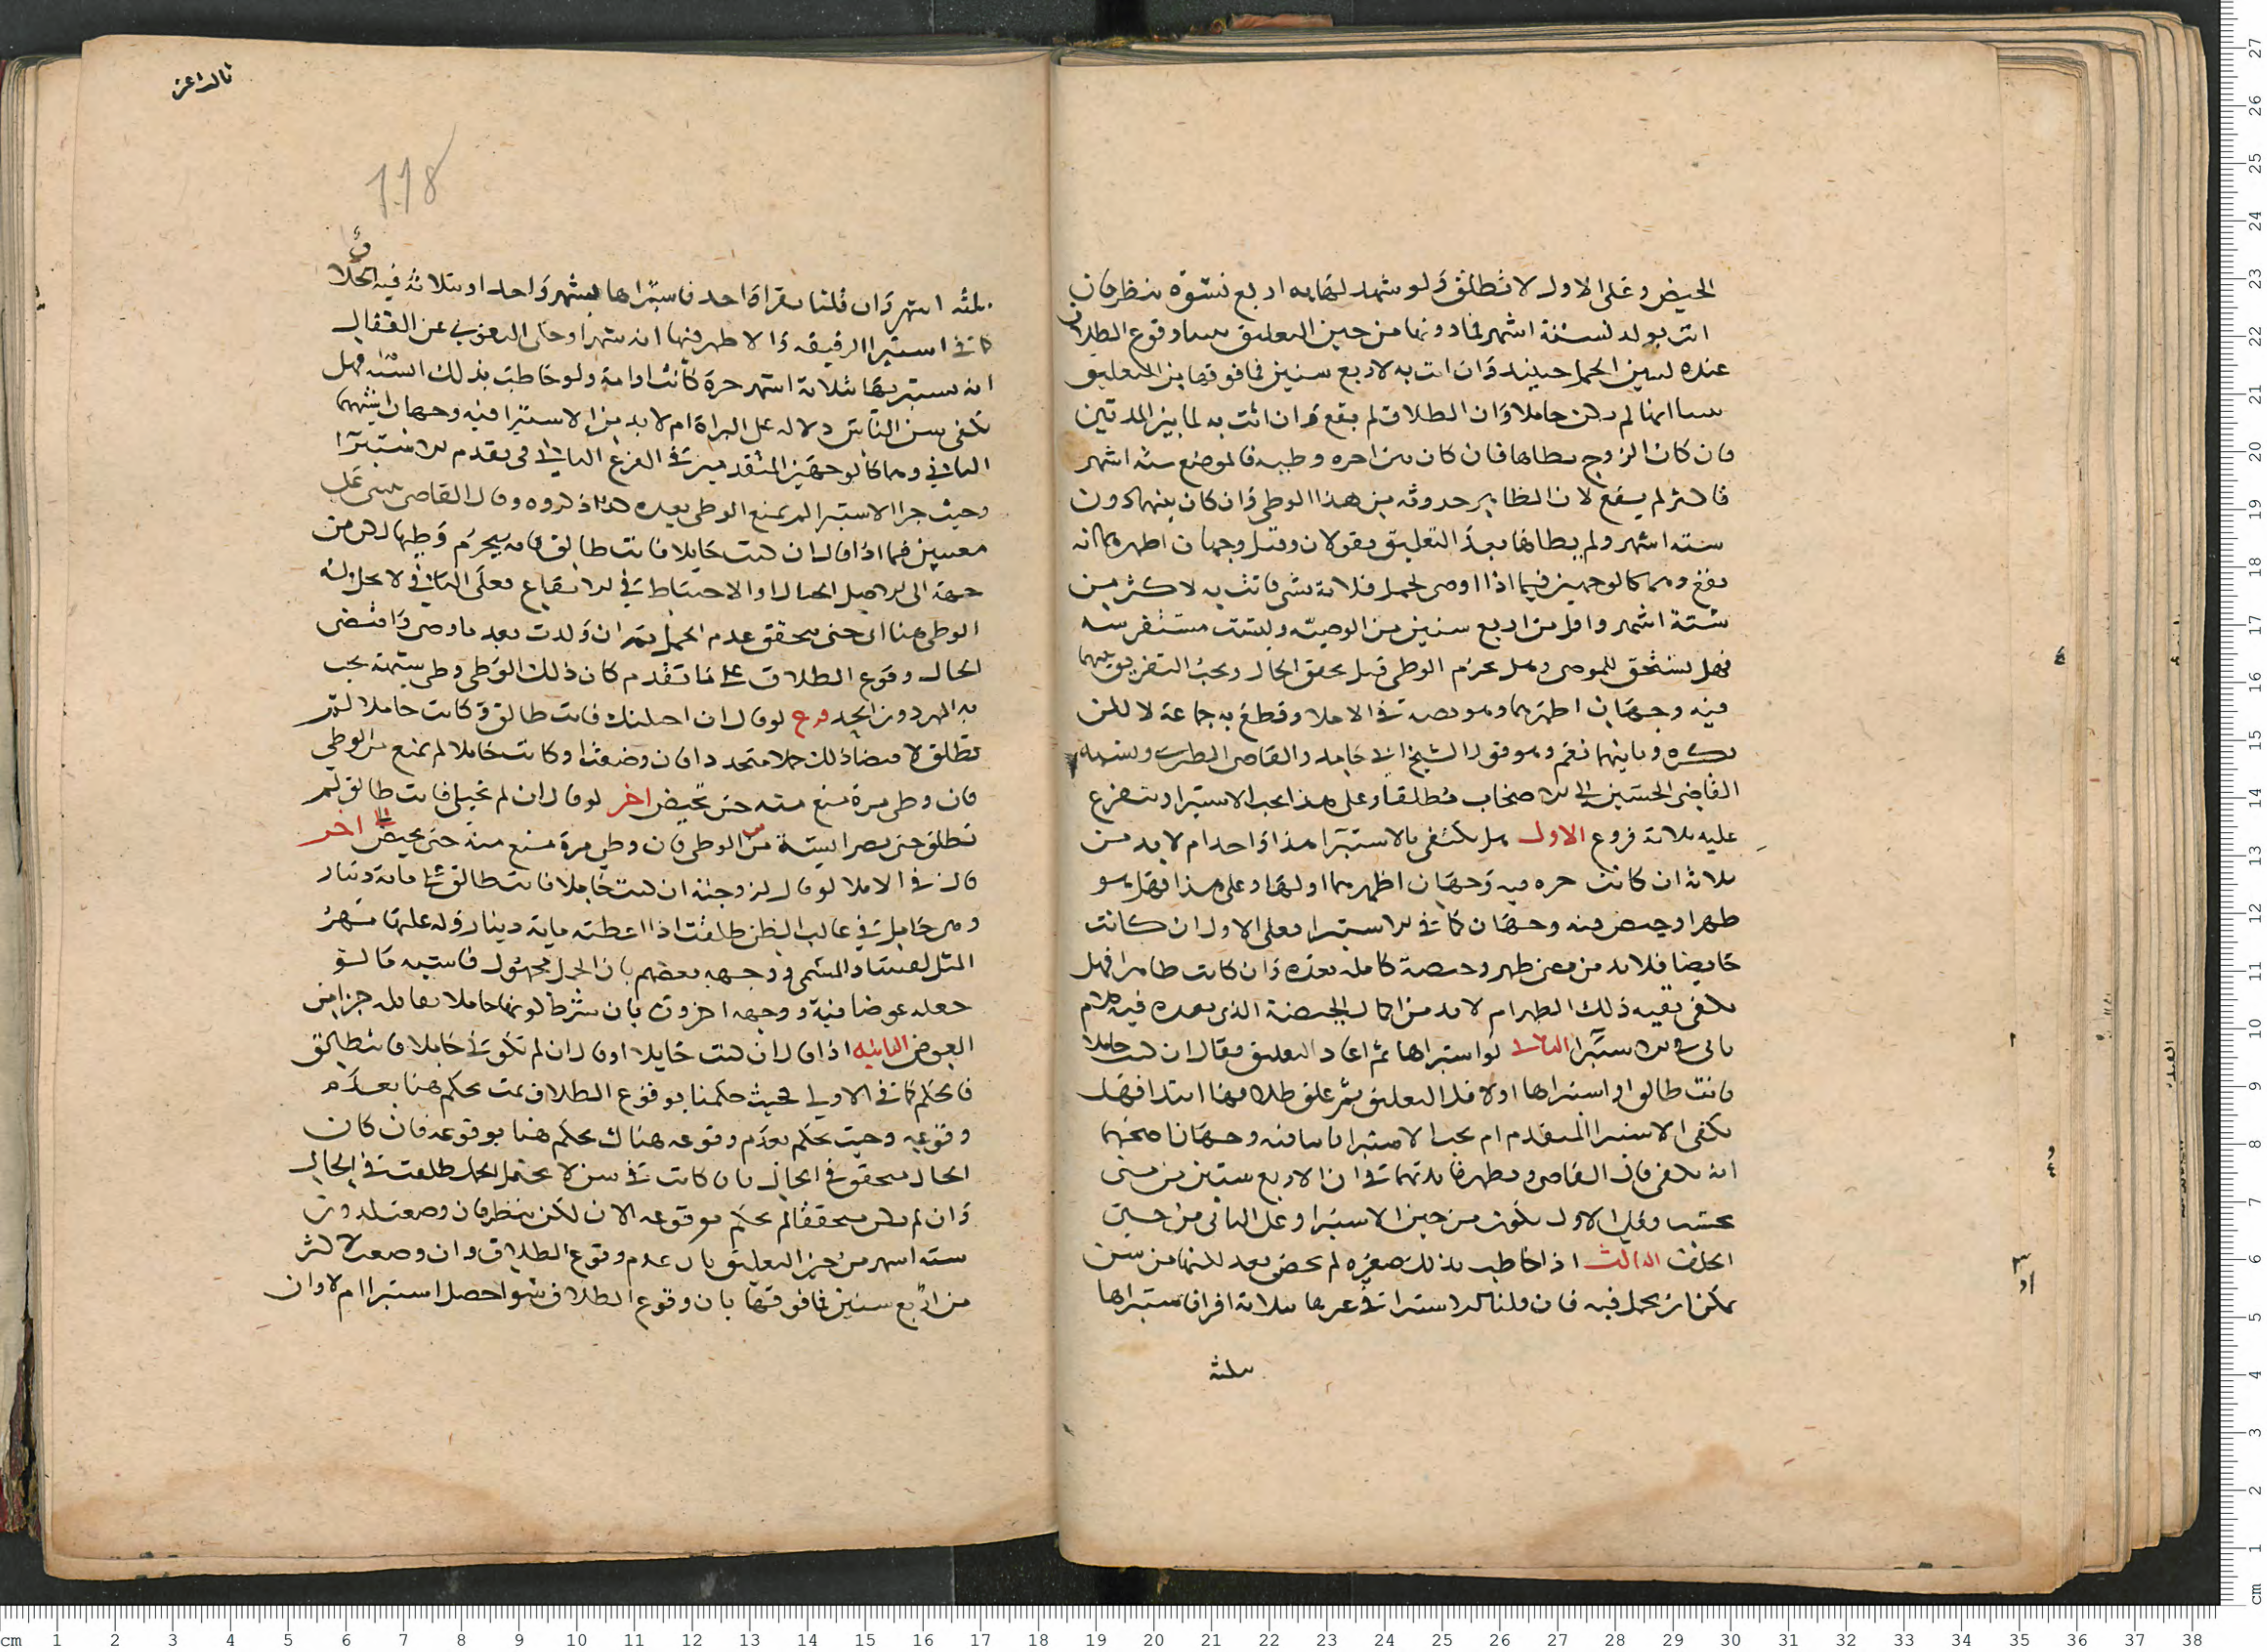 الحيض وعلى الاول لا تطلق ولو شهد لها به اربع نسوة ينظر فان
اتت بولد لستة اشهر فما دونها من حين التعليق وقوع الطلاق
عنده لتبين الحمل حينيذ وان اتت به لاربع سنين فما فوقها من التعليق
انها لم تكن حاملا وان الطلاق لم يقع وان اتت به لما بين المدتين
فان كان الزوج يطاها فان كان من اخره وطيه فالموضع ستة اشهر
فاكثر لم يقع لان الظاهر حدوثه من هذا الوطي وان كان بينهما دون
ستة اشهر ولم يطاها بعد التعليق فقولان وقيل وجهان اظهرهما انه
يقع وهما كالوجهين فيما اذا اوصى لحمل فلانة بشي فاتت به لاكثر من
ستة اشهر واقل من اربع سنين من الوصية وليست مستفرشة
فهل يستحق الموصى وهل يحرم الوطي قبل تحقق الحال ويجب التفريق بينهما
فيه وجهان اظهرهما وهو نصه في الاملا وقطع به جماعة لا لكن
يكره وثانيهما نعم وهو قول الشيخ ابي حامد والقاضي الطبري ونسبه
القاضي الحسين الى الاصحاب مطلقا وعلى هذا يجب الاستبرا ويتفرع
عليه ثلاثة فروع الاول هل يكتفى بالاستبرا هذا واحد ام لا بد من
ثلاثة ان كانت حره فيه وجهان اظهرهما اولها وعلى هذا فهل هو
طهر او حيض فيه وجهان كما في الاستبرا فعلى الاول ان كانت
حايضا فلا بد من مضي طهر وحيضة كاملة بعده وان كانت طاهرا فهل
يكفي بقية ذلك الطهر ام لا بد من اكمال الحيضة الذي بعده فيه كلام
ياتي في الاستبرا الثاني لو استبراها ثم اعاد التعليق فقال ان كنت حاملا
فانت طالق او استبراها اولا قبل التعليق ثم علق طلاقها ابتدا فهل
يكفي الاستبرا المتقدم ام يجب الاستبرا ثانيا فيه وجهان اصحهما
انه يكفي قال القاضي وتظهر فايدتهما في ان الاربع سنين من متى
تحتسب فعلى الاول يكون من حين الاستبرا وعلى الثاني من حين
الحلف الثالث اذا خاطب بذلك صغيرة لم تحض بعد لكنها من سن
يمكن ان تحمل فيه فان قلنا الاستبرا في غيرها بثلاثة اقرا فاستبراها
بثلثه
تالداعز
118
بثلثه اشهر وان قلنا بقرا واحد فاستبراها بشهر واحد او بثلاثة فيه الخلاف
كما في استبرا الرقيقة والاظهر فيها انه شهر او حكى البغوي عن القفال
انه يستبريها بثلاثة اشهر حرة كانت او امة ولو خاطب بذلك ايسة فهل
يكفي سن الياس دلالة على البراة ام لا بد من الاستبرا فيه وجهان اشبههما
الثاني وهما كالوجهين المتقدمين في الفرع الثاني في تقدم الاستبرا
وحيث جرا الاستبرا لم يمنع الوطي بعده كذا ذكروه وقال القاضي
معنيين فيما اذا قال ان كنت حايلا فانت طالق فانه يحرم وطيها لكن من
جهة ان الاصل الحيال او الاحتياط في الايقاع فعلى الثاني لا يحل له
الوطي هنا الى حتى يتحقق عدم الحمل ثم ان ولدت بعد ما وطي واقتضى
الحال وقوع الطلاق على ما تقدم كان ذلك الوطي وطي شبهة يجب
به المهر دون الحد فرع لو قال ان احبلتك فانت طالق وكانت حاملا لم
تطلق لاقتضا ذلك حملا متجددا فان وضعت او كانت حاملا لم يمنع من الوطي
فان وطي مرة منع منه حتى تحيض اخر لو قال ان لم تحبلي فانت طالق لم
تطلق حتى تصير ايسة من الوطي فان وطي مرة منع منه حتى تحيض اخر
قال في الاملا لو قال لزوجته ان كنت حاملا فانت طالق على ماية دينار
وهي حامل في غالب الظن طلقت اذا اعطته ماية دينار وله عليها مهر
المثل لفساد المسمى ووجهه بعضهم بان الحمل مجهول فاشبه ما لو
جعله عوضا فيه ووجهه اخرون بان شرط كونها حاملا يقابله جزا من
العوض الثانية اذا قال ان كنت حايلا او قال ان لم تكوني حاملا فانت طالق
فالحكم كما في الاولى فحيث حكمنا بوقوع الطلاق ثمت نحكم هنا بعدم
وقوعه وحيث نحكم بعدم وقوعه هناك نحكم هنا بوقوعه فان كان
الحال متحقق في الحال بان كانت في سن لا يحتمل الحمل طلقت في الحال
وان لم يكن متحققا لم نحكم بوقوعه الان لكن ينظر فان وضعت لدون
ستة اشهر من حين التعليق بان عدم وقوع الطلاق وان وضعت لاكثر
من اربع سنين فما فوقها بان وقوع الطلاق سوا حصل استبرا ام لا وان